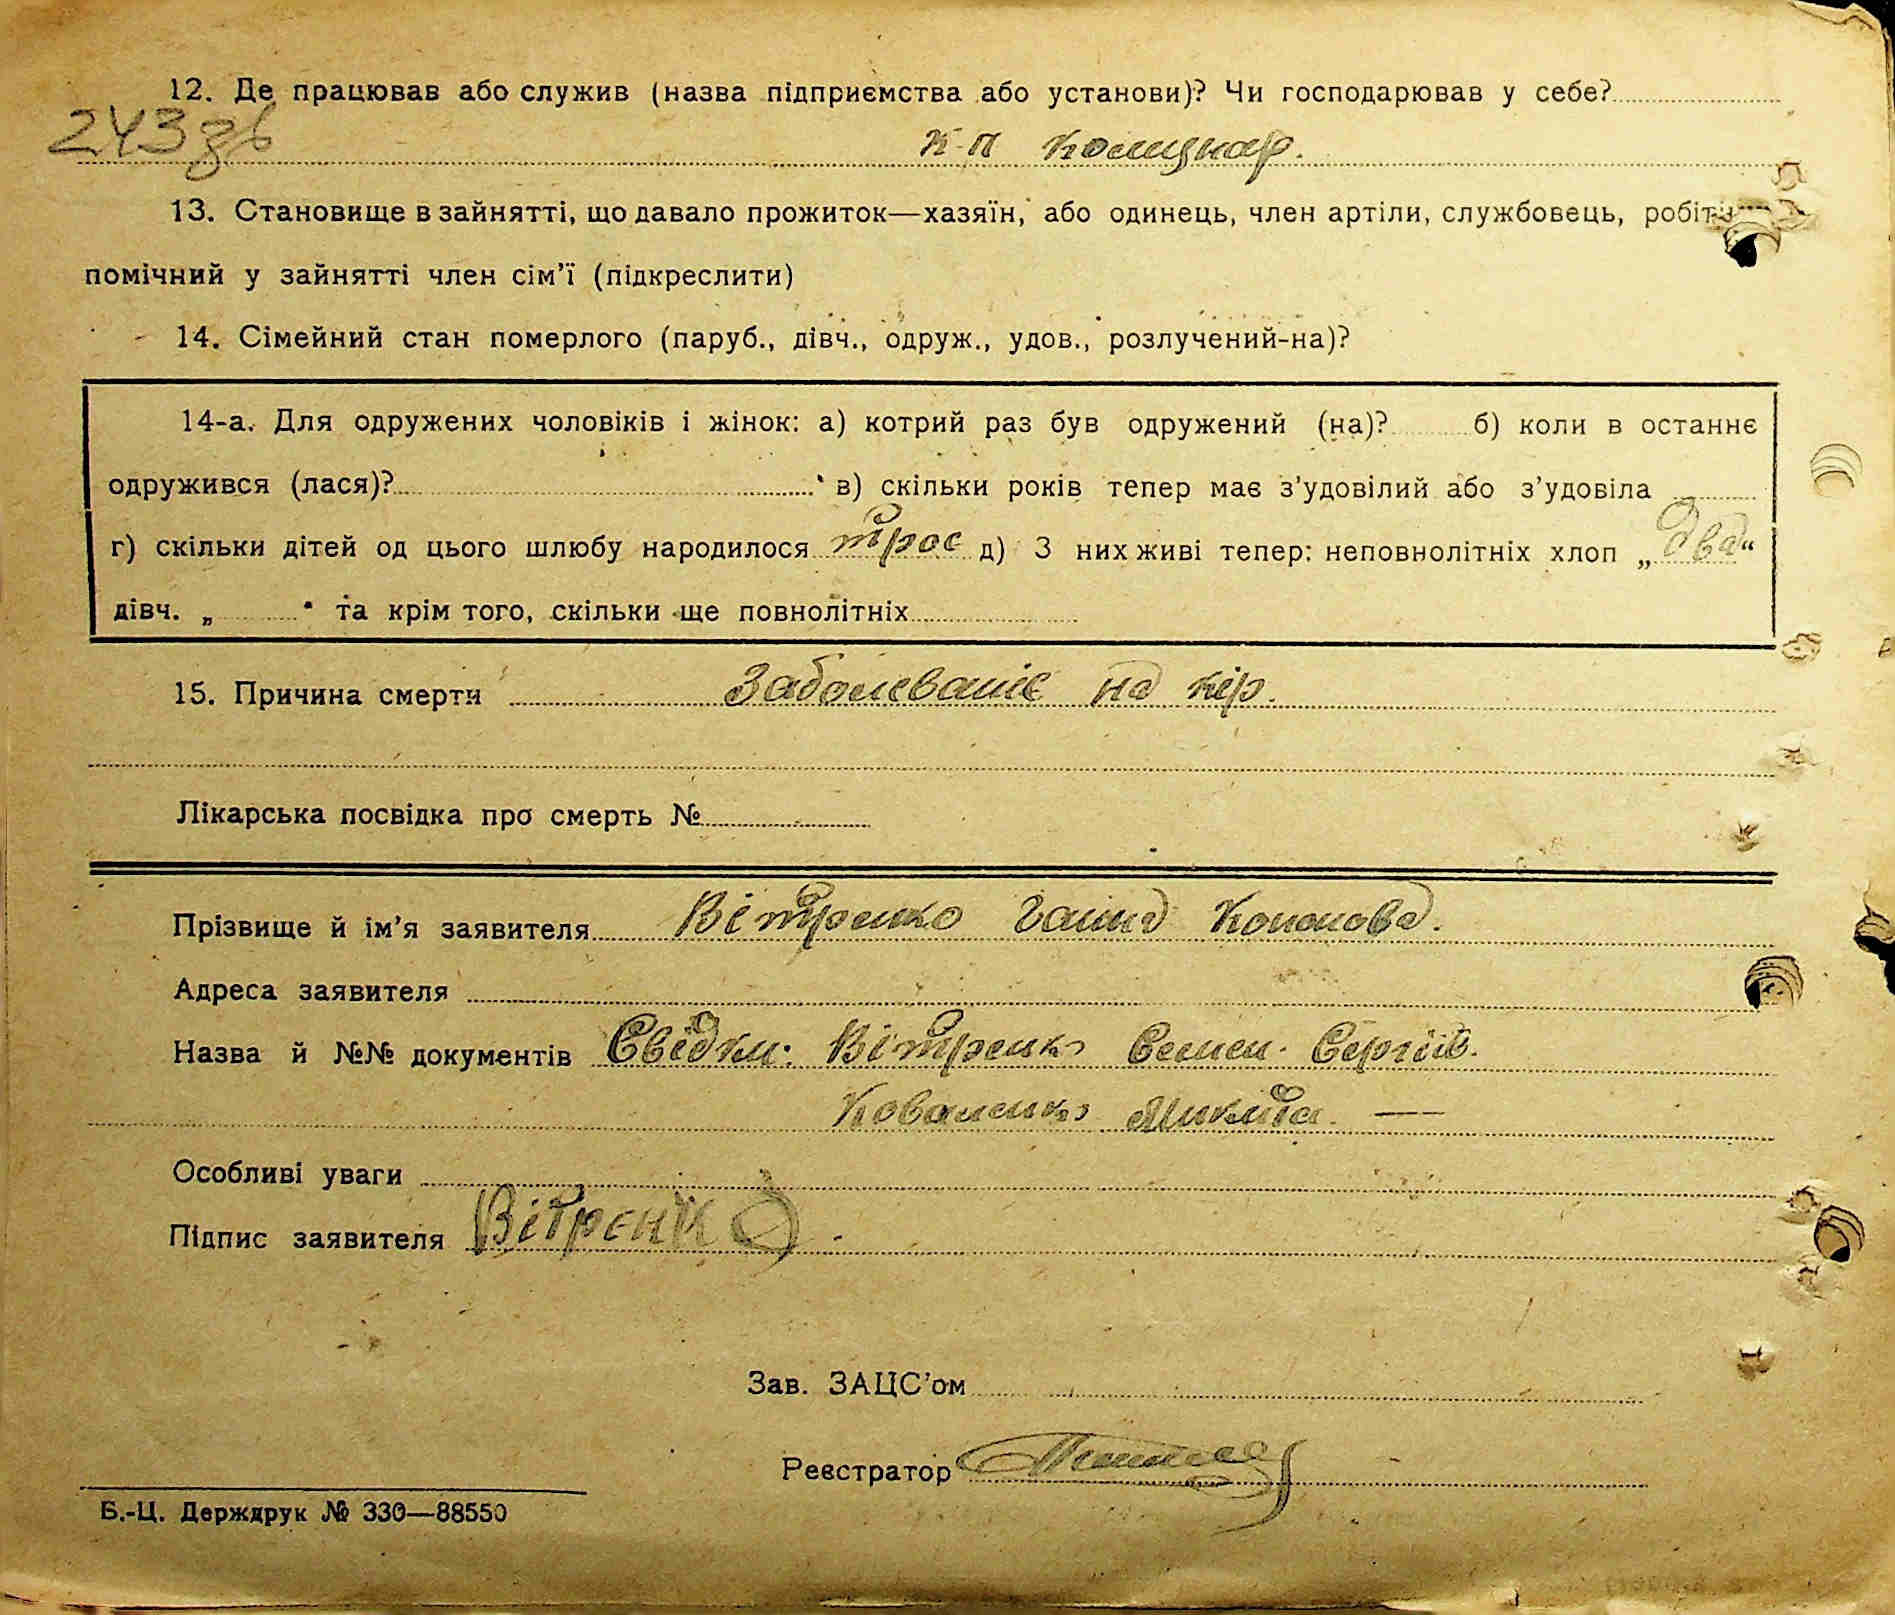 12. Де працював або служив (назва підприємства або установи)? Чи господарював у себе?
243 зв
к-п
13. Становище в зайнятті, що давало прожиток—хазяїн, або одинець, член артіли, службовець,
помічний у зайнятті член сім'ї (підкреслити)
14. Сімейний стан померлого (паруб., дівч., одруж., удов., розлучений-на)?
14-а. Для одружених чоловіків і жінок: а) котрий раз був одружений (на)? б) коли в останнє
одружився (лася)? в) скільки років тепер має з'удовілий або з'удовіла
г) скільки дітей од цього шлюбу народилося трое д) З них живі тепер: неповнолітніх хлоп „два“
дівч. „ “ та крім того, скільки ще повнолітніх
15. Причина смерти Заболеваніє на кір.
Лікарська посвідка про смерть №
Прізвище й ім'я заявителя Вітренко Ганна Кононова.
Адреса заявителя
Назва й №№ документів Свідки: Вітренко Семен Сергіїв.
Коваленко Микита. —
Особливі уваги
Підпис заявителя Вітрєнко
Зав. ЗАЦС'ом
Реєстратор
Б.-Ц. Держдрук № 330—88550